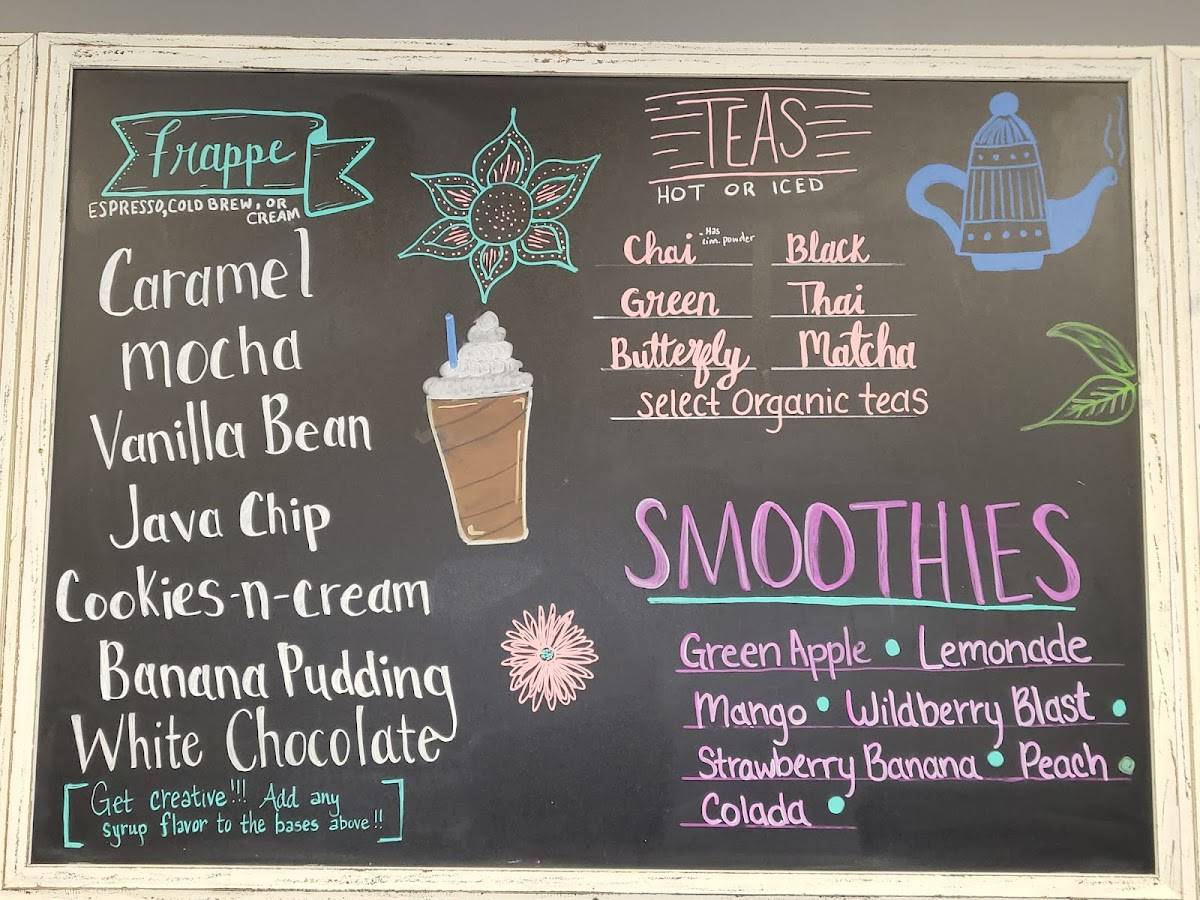 Frappe
ESPRESSO, COLD BREW, OR
CREAM
Caramel
mocha
Vanilla Bean
Java Chip
Cookies-n-cream
Banana Pudding
White Chocolate
Get creative!!! Add any
syrup flavor to the bases above!!
TEAS
HOT OR ICED
Chai
Has
powder
Black
Green
Thai
Butterfly
Matcha
select Organic teas
SMOOTHIES
Green Apple • Lemonade
Mango • Wildberry Blast •
Strawberry Banana • Peach •
Colada •